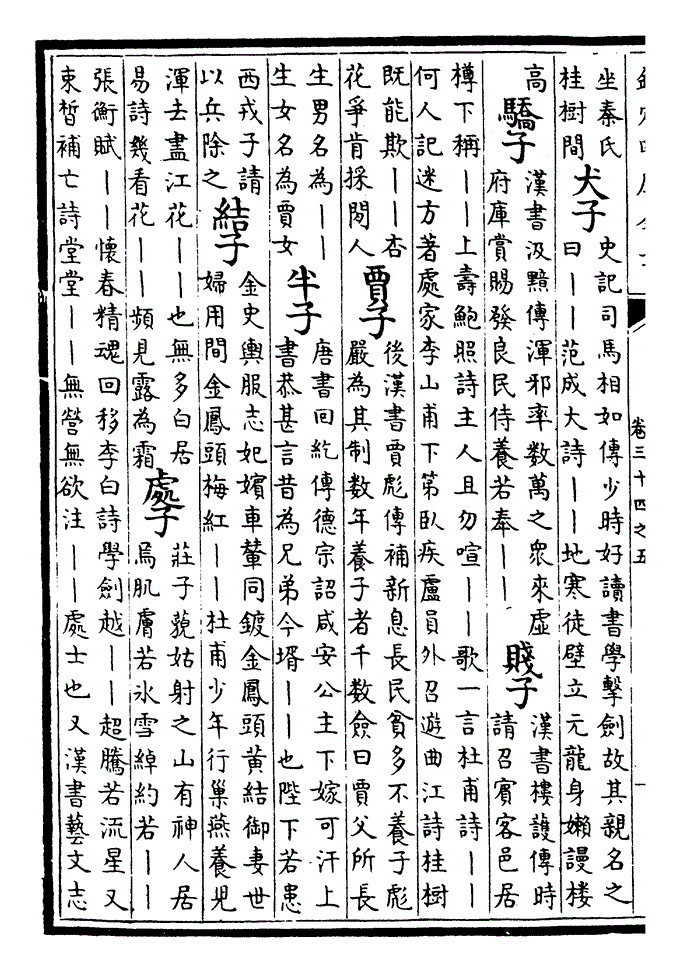 卷三十四之五
坐秦氏
桂樹間
犬子
史記司馬相如傳少時好讀書學擊劍故其親名之
曰——范成大詩——地寒徒壁立元龍身嬾謾樓
高
驕子
漢書汲黯傳渾邪率數萬之衆來虛
府庫賞賜發良民侍養若奉——
賤子
漢書樓護傳時
請召賓客邑居
樽下稱——上壽鮑照詩主人且勿喧——歌一言杜甫詩——
何人記迷方著處家李山甫下第臥疾盧員外召遊曲江詩桂樹
既能欺——杏
花爭肯採閒人
賈子
後漢書賈彪傳補新息長民貧多不養子彪
嚴為其制數年養子者千數僉曰賈父所長
生男名為——
生女名為賈女
半子
唐書回紇傳德宗詔咸安公主下嫁可汗上
書恭甚言昔為兄弟今壻——也陛下若患
西戎子請
以兵除之
結子
金史輿服志妃嬪車輦同鍍金鳳頭黃結御妻世
婦用間金鳳頭梅紅——杜甫少年行巢燕養兒
渾去盡江花——也無多白居
易詩幾看花——頻見露為霜
處子
莊子藐姑射之山有神人居
焉肌膚若氷雪綽約若——
張衡賦——懷春精魂回移李白詩學劍越——超騰若流星又
束晳補亡詩堂堂——無營無欲注——處士也又漢書藝文志